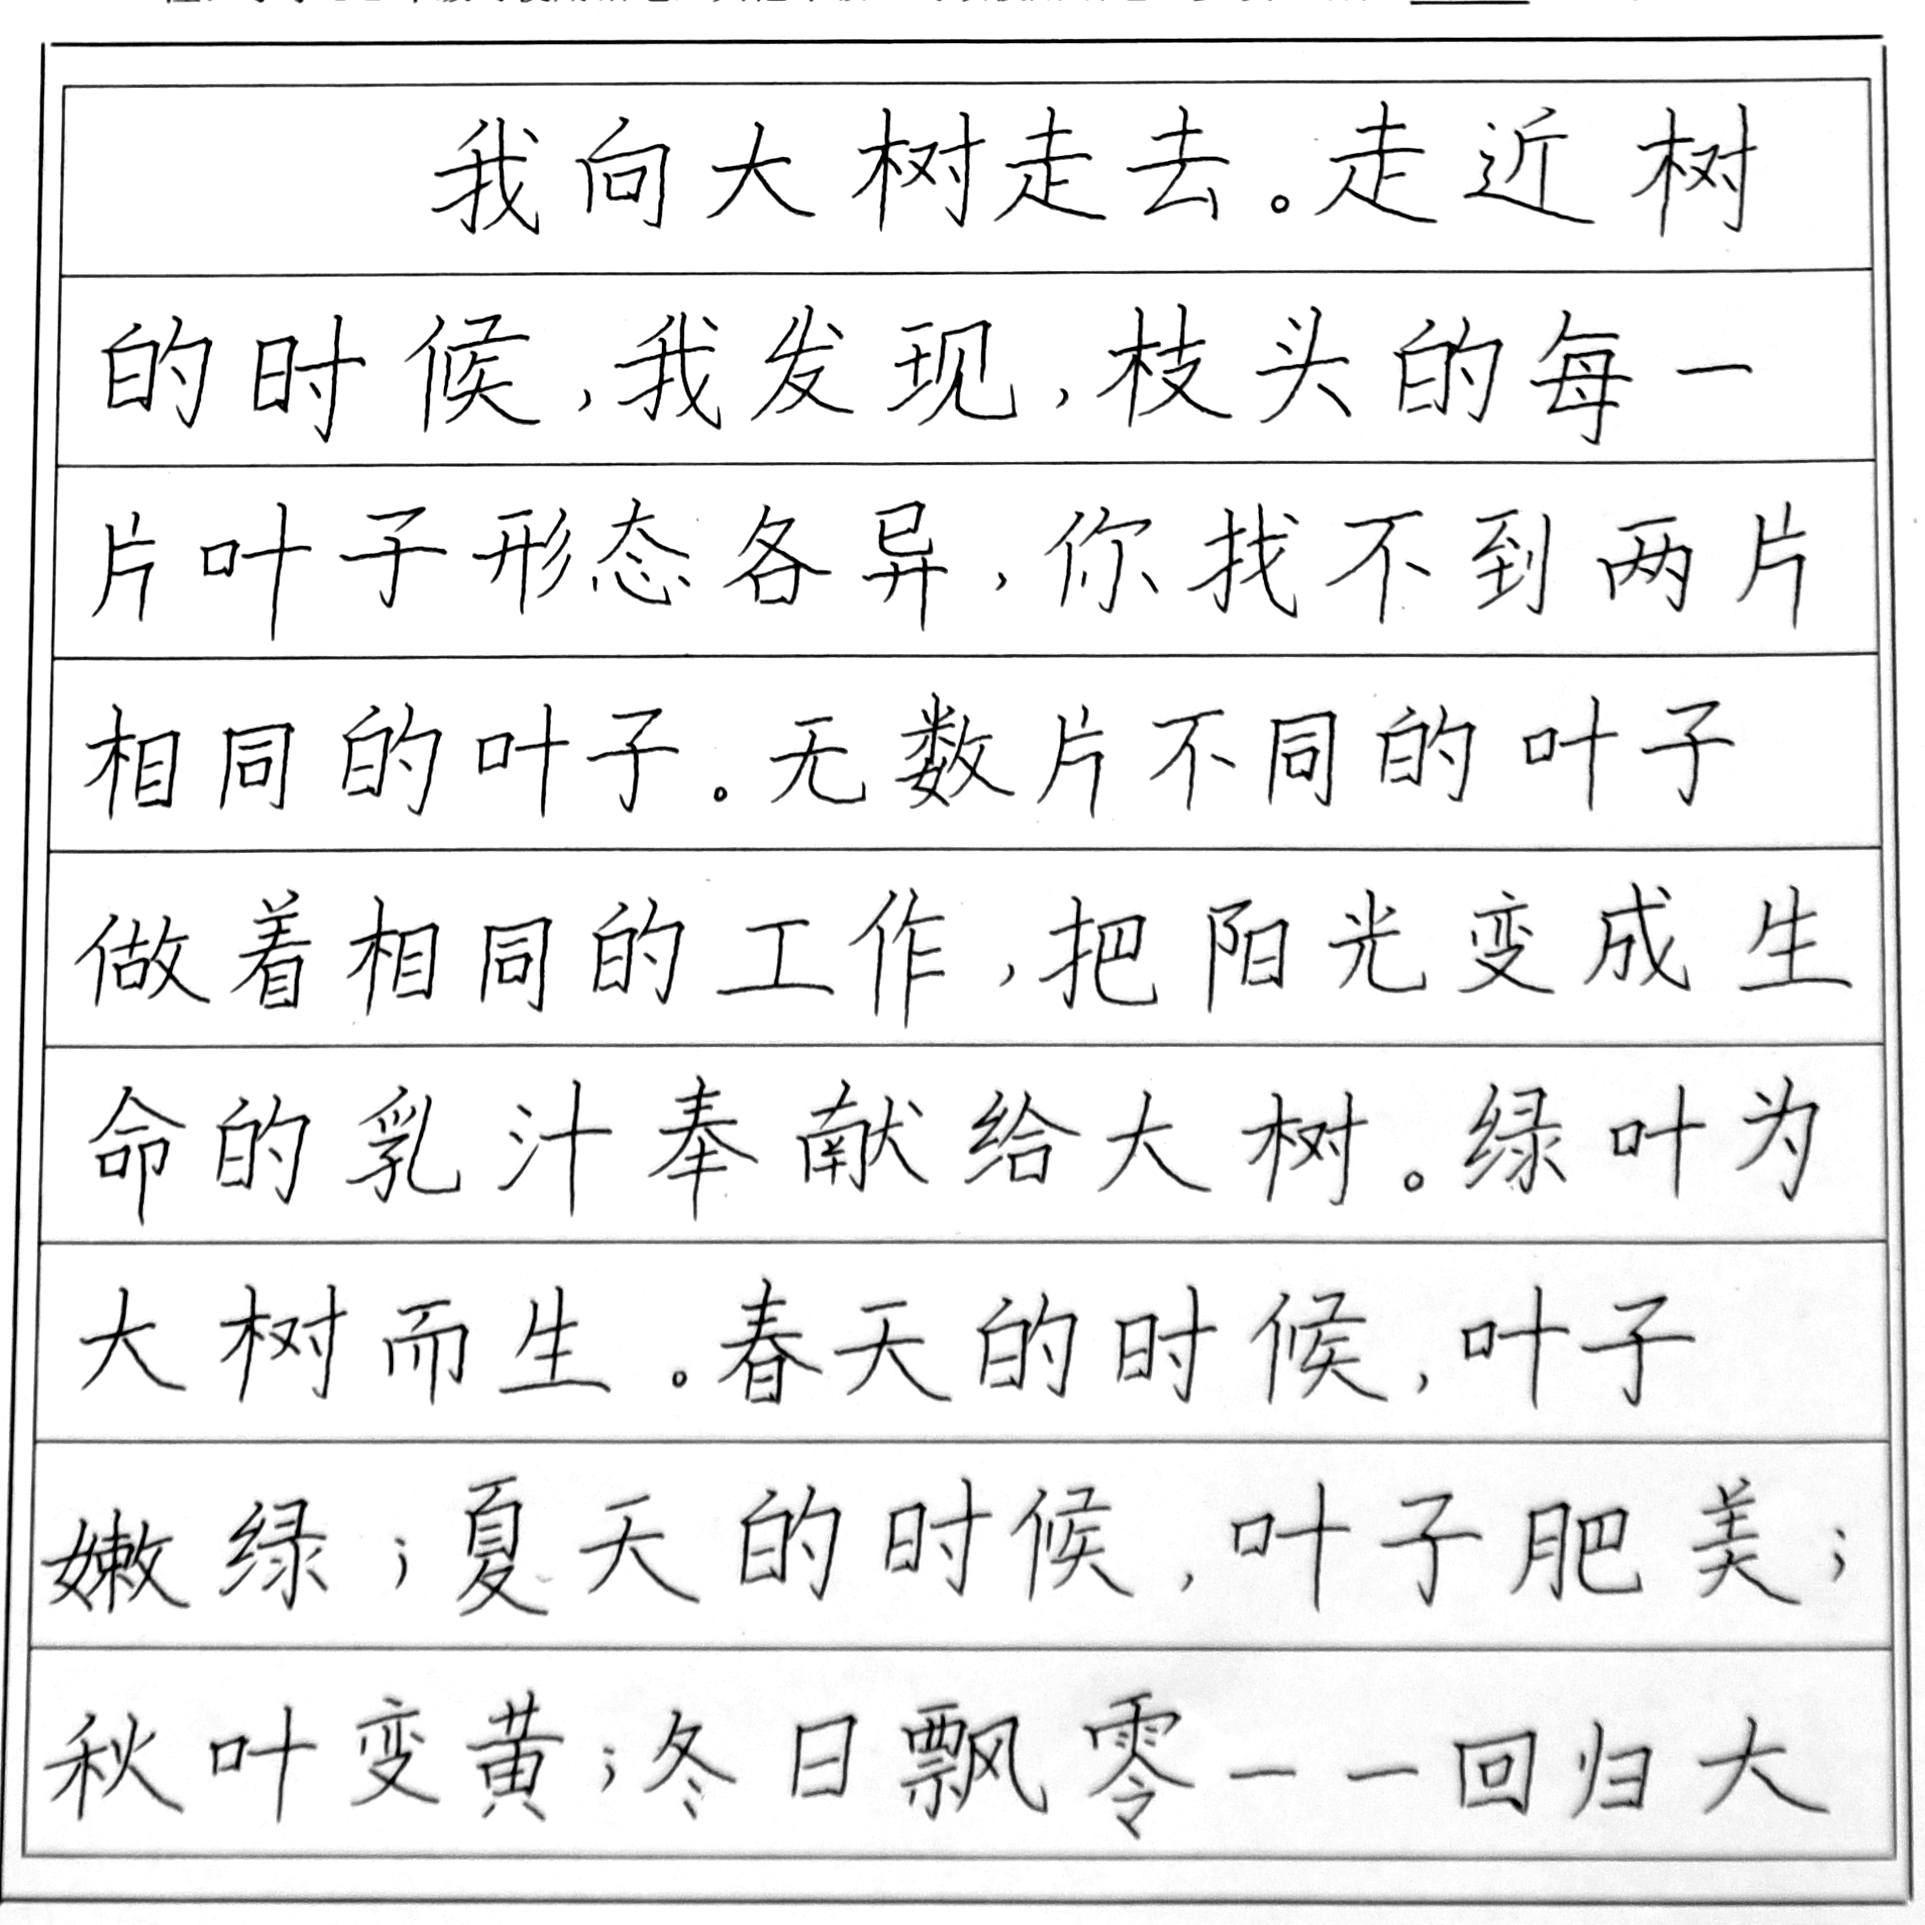 我向大树走去。走近树
的时候,我发现,枝头的每一
片叶子形态各异,你找不到两片
相同的叶子。无数片不同的叶子
做着相同的工作,把阳光变成生
命的乳汁奉献给大树。绿叶为
大树而生。春天的时候,叶子
嫩绿;夏天的时候,叶子肥美;
秋叶变黄;冬日飘零——回归大